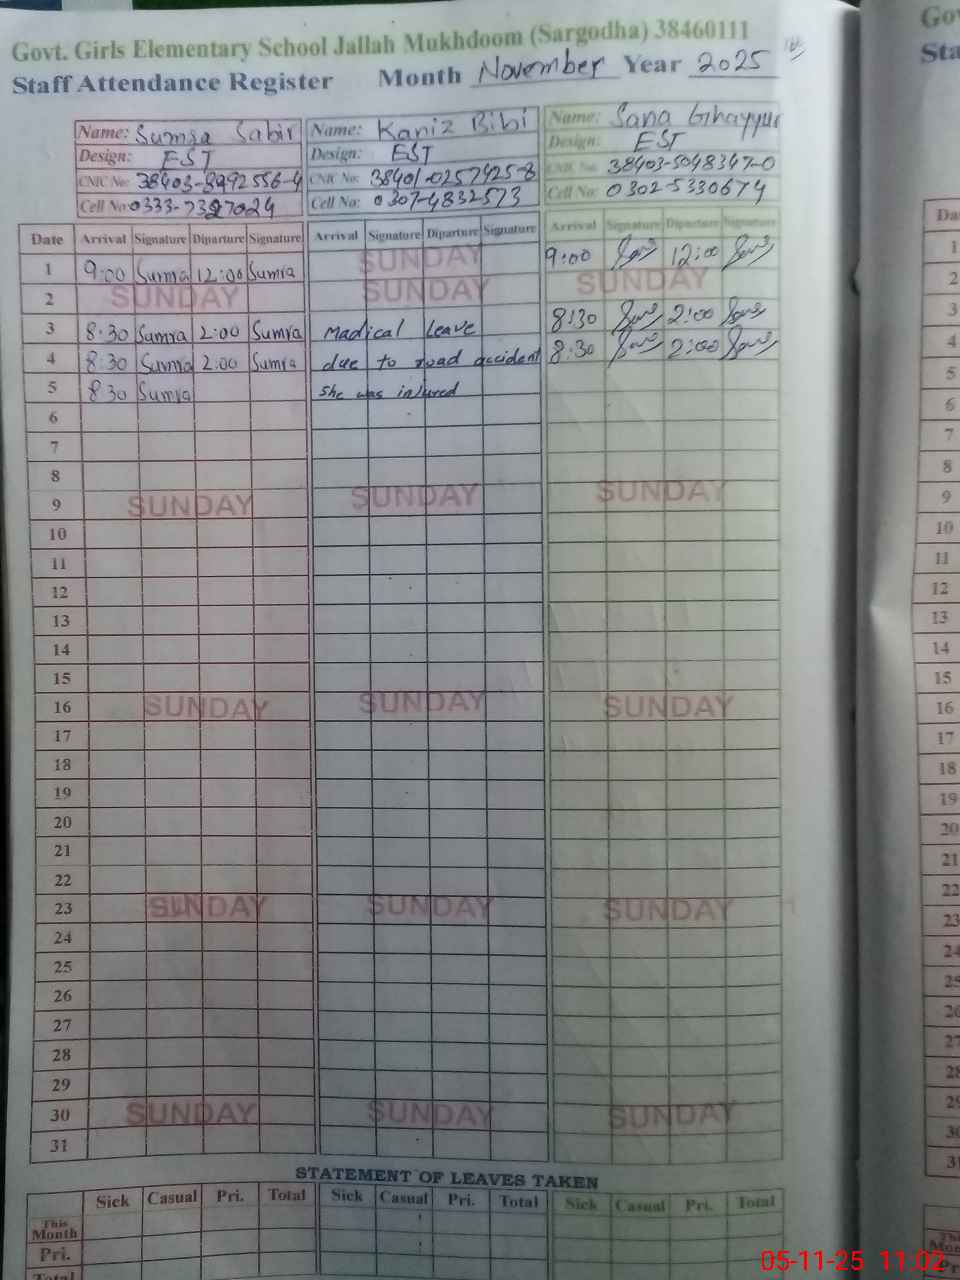 Govt. Girls Elementary School Jallah Mukhdoom (Sargodha) 38460111
Staff Attendance Register Month November Year 2025
Name: Sumra Sabir Name: Kaniz Bibi Name: Sana Ghayyur
Design: EST Design: EST Design: EST
CNIC No: CNIC No: 38401-0257425-8 CNIC No: 38403-5048347-0
Cell No: Cell No: 0307-4832573 Cell No: 0302-5330674
Date Arrival Signature Diparture Signature Arrival Signature Diparture Signature Arrival Signature Diparture Signature
1 9:00 Sumra 12:00 Sumra SUNDAY 9:00 12:00
2 SUNDAY SUNDAY SUNDAY
3 8:30 Sumra 2:00 Sumra Madical Leave 8:30 2:00
4 8:30 Sumra 2:00 Sumra due to road accident 8:30 2:00
5 8:30 Sumra She was injured
6
7
8
9 SUNDAY SUNDAY SUNDAY
10
11
12
13
14
15
16 SUNDAY SUNDAY SUNDAY
17
18
19
20
21
22
23 SUNDAY SUNDAY SUNDAY
24
25
26
27
28
29
30 SUNDAY SUNDAY SUNDAY
31
STATEMENT OF LEAVES TAKEN
Sick Casual Pri. Total Sick Casual Pri. Total Sick Casual Pri. Total
This Month
Pri.
Total
05-11-25 11:02